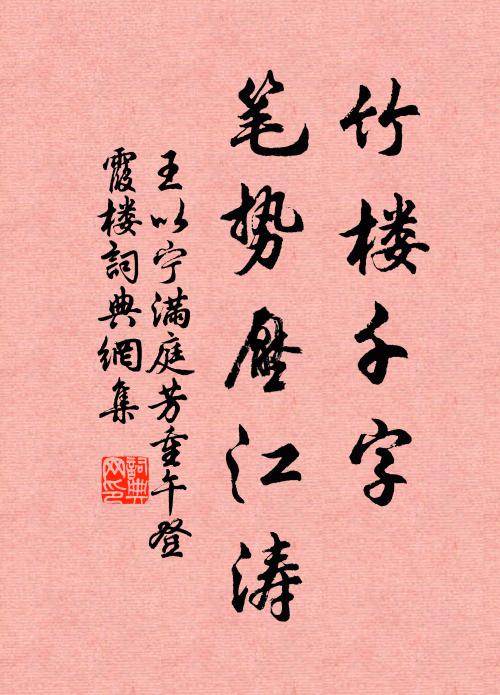 竹楼千字
笔势压江涛
王以宁满庭芳重午登
霞楼詞典網集
詞典网印